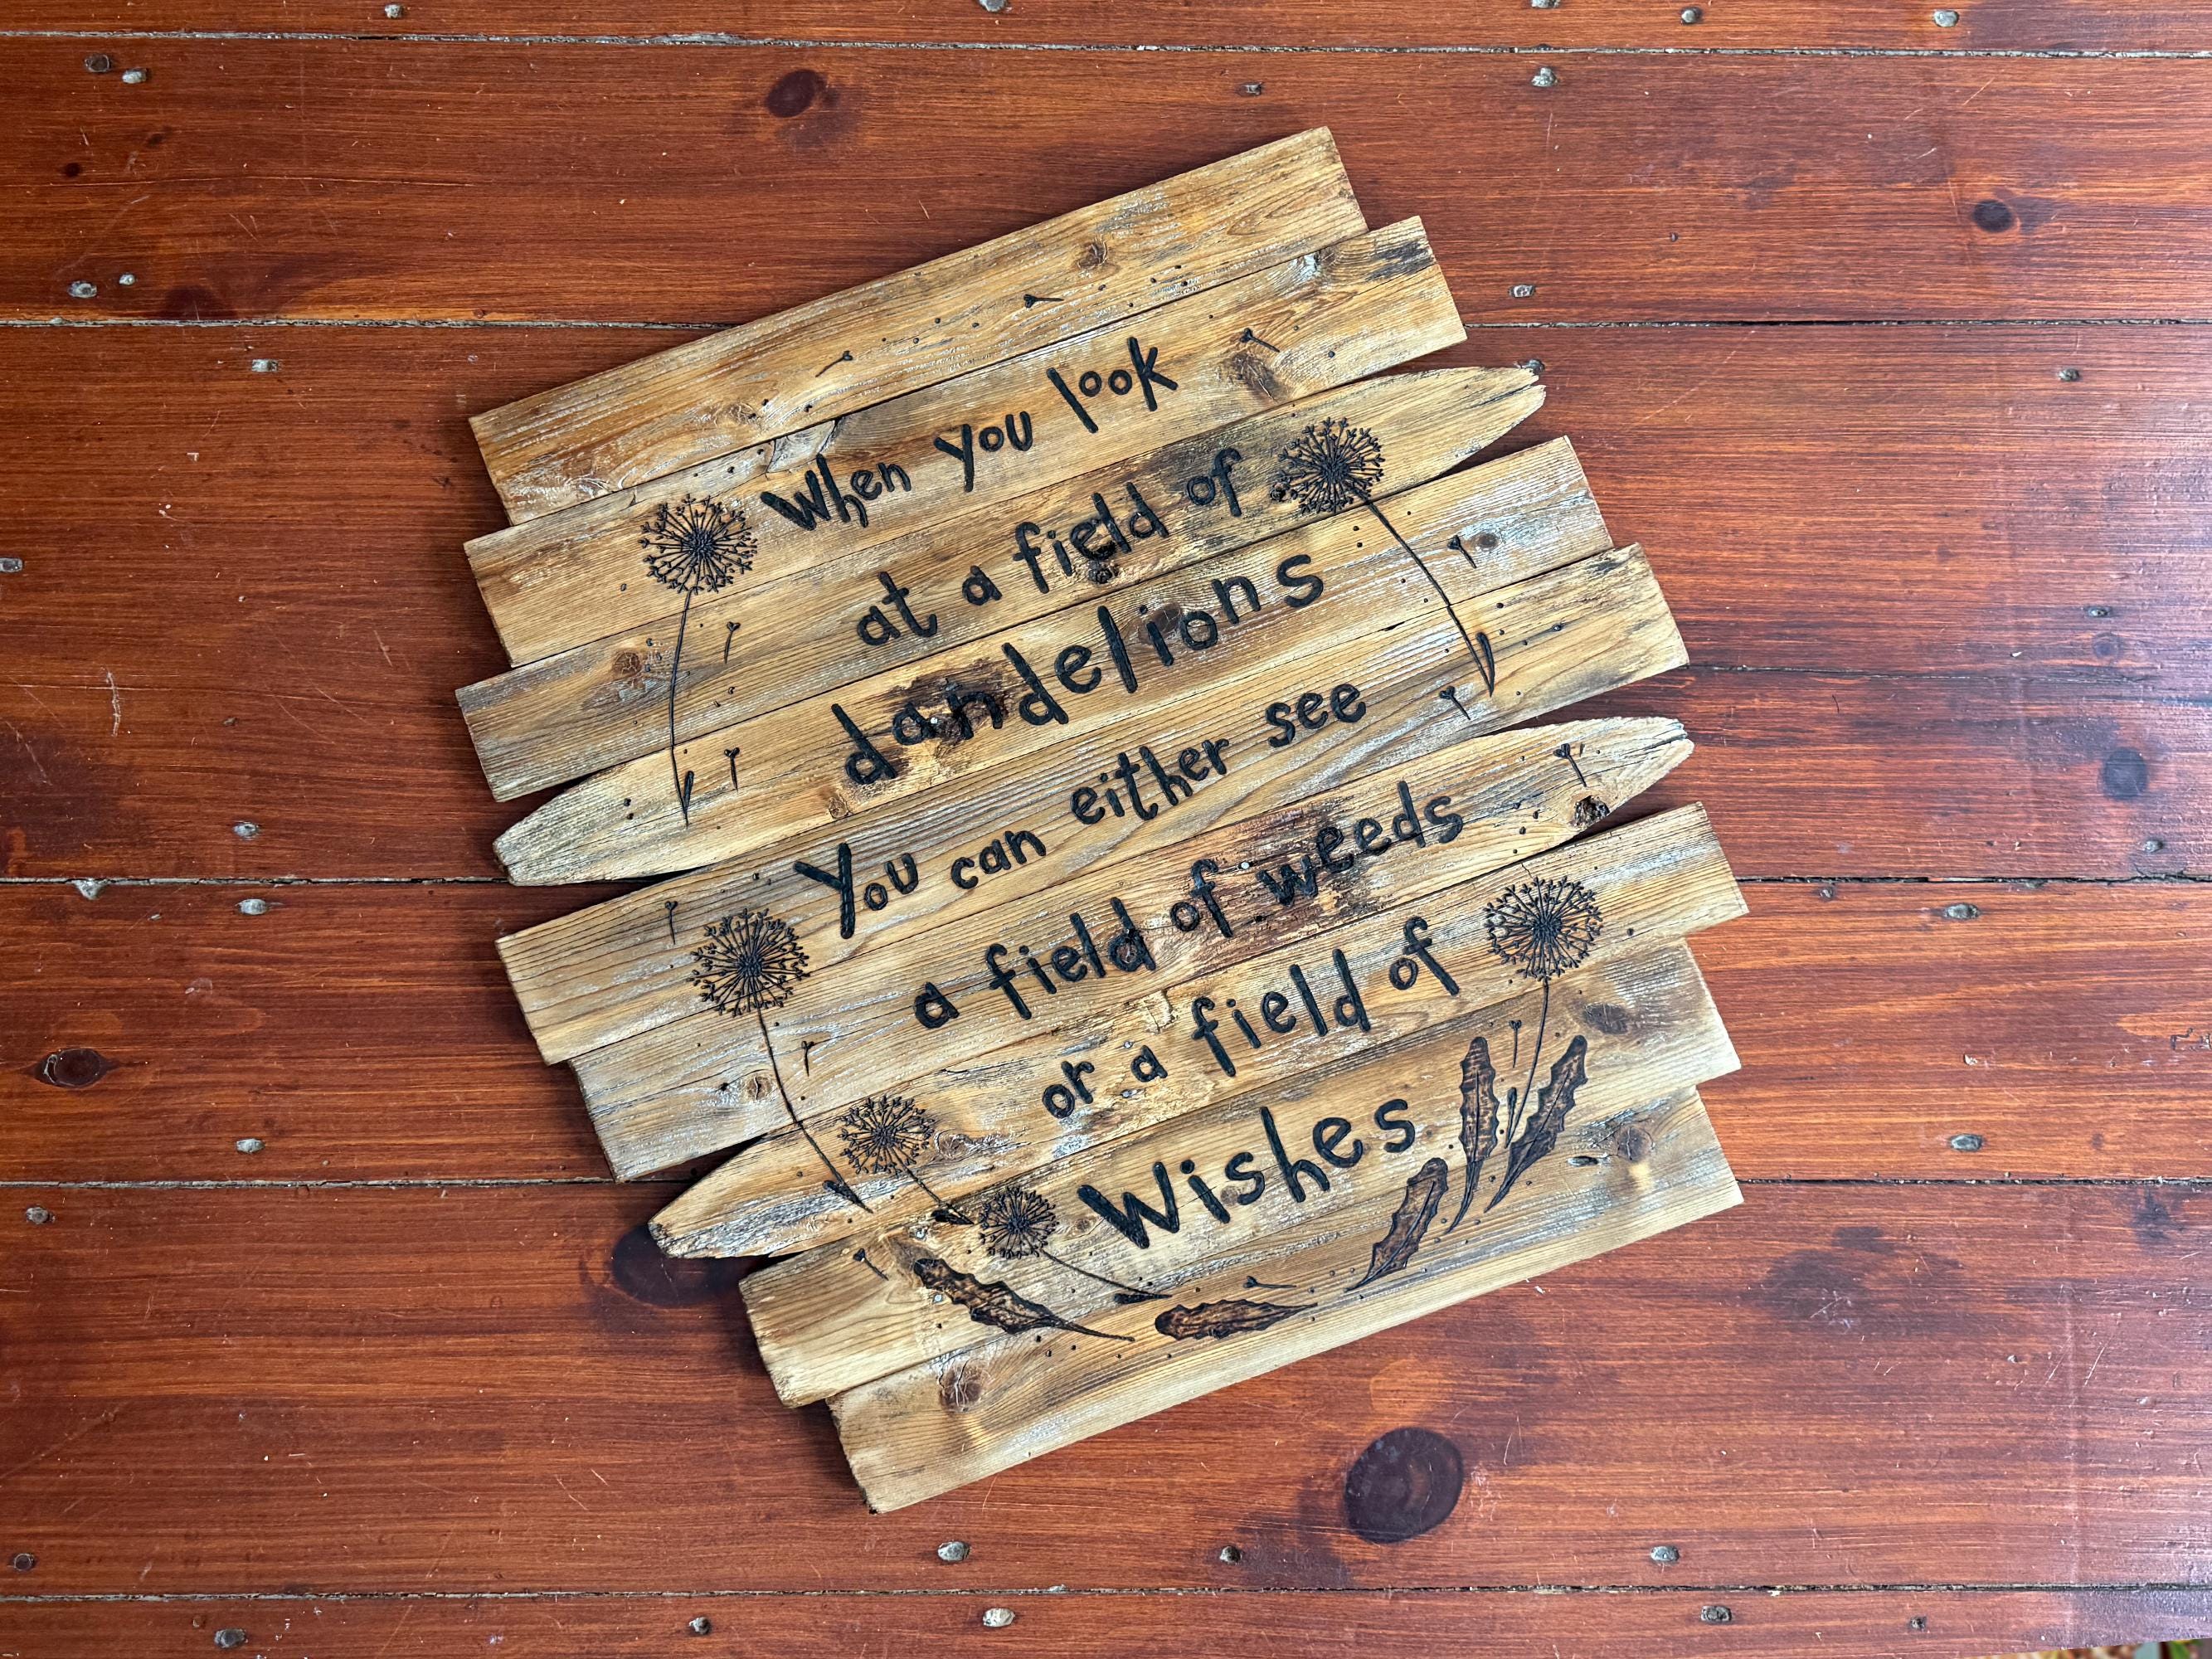 When you look
at a field of
dandelions
You can either see
a field of weeds
or a field of
Wishes